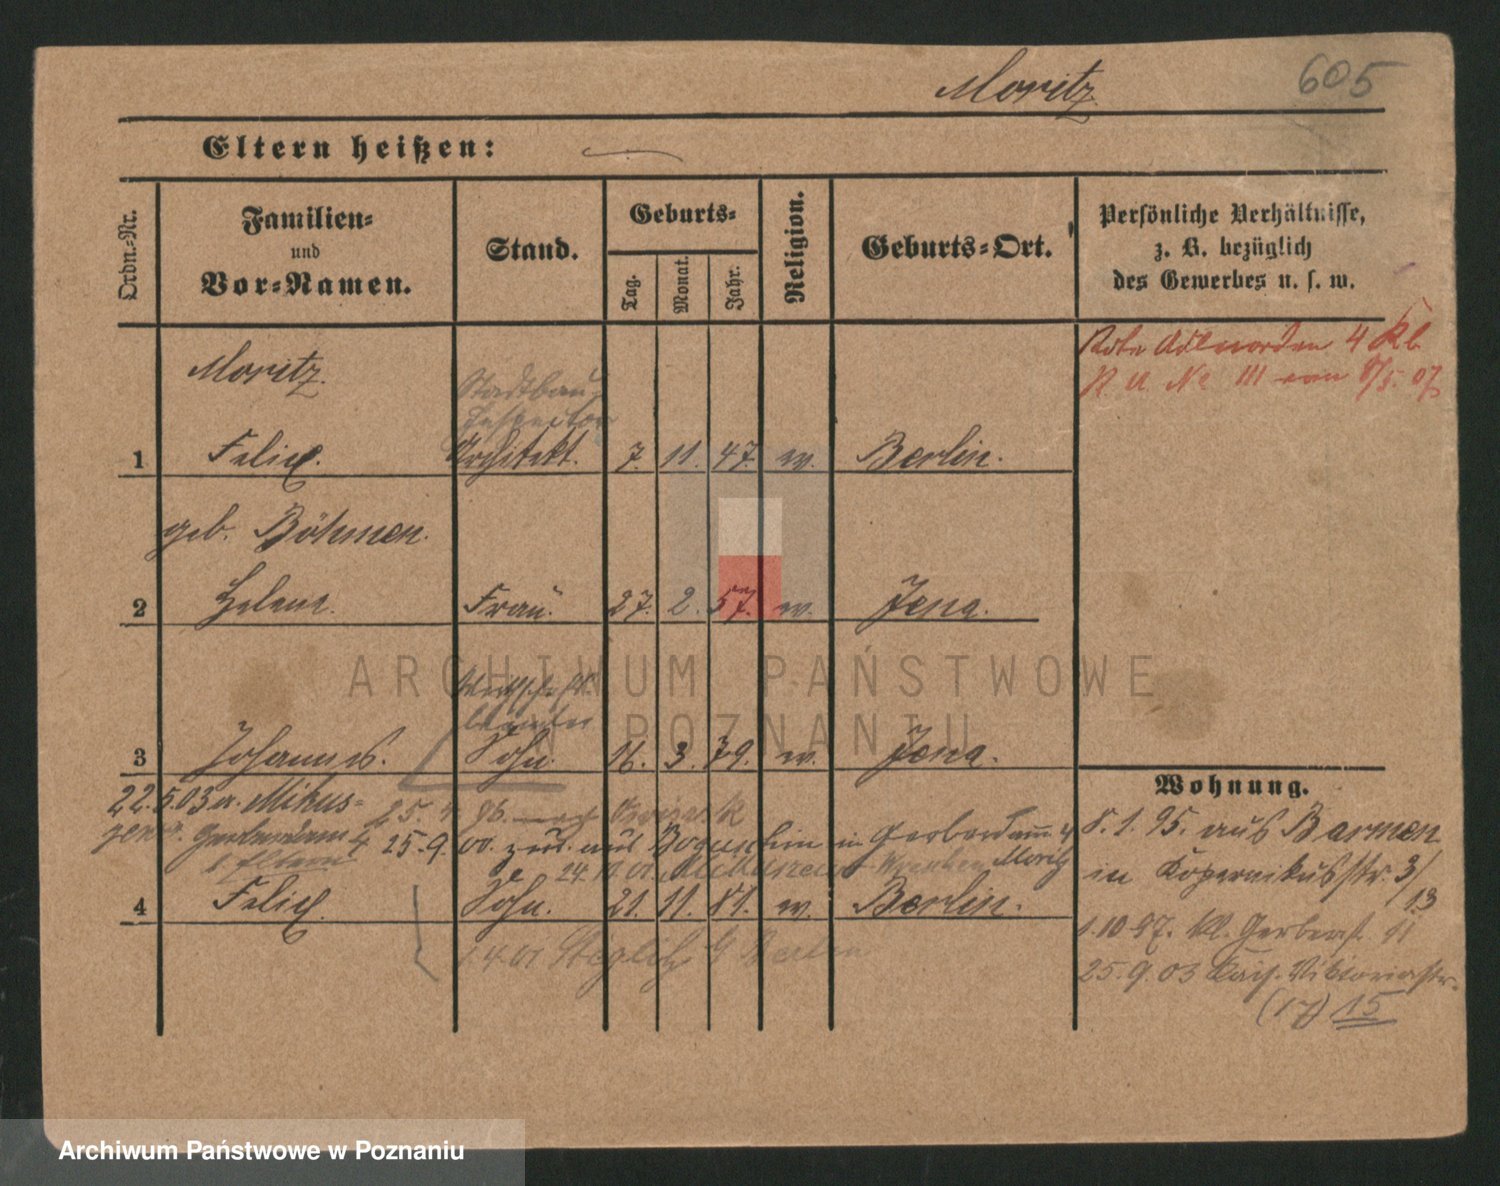 Moritz
605
Eltern heißen:
Ordn.-Nr.
Familien-
und
Vor-Namen.
Stand.
Geburts-
Tag.
Monat.
Jahr.
Religion.
Geburts-Ort.
Persönliche Verhältnisse,
z. B. bezüglich
des Gewerbes u. s. w.
Rote Adlerorden 4 Kl.
R. A. No III von 8/5. 07
Moritz.
Stadtbau-
Inspector
1 Felix. Architekt. 7. 11. 47. ev. Berlin.
geb. Böhmen.
2 Helene. Frau. 27. 2. 57. ev. Jena.
3 Johannes. Sohn. 16. 3. 79. ev. Jena.
22.5.03 a. Mikus-
25. 4. 96. nach
25.9.00. zur. aus Boguschin in Gerberdamm 4
Moritz
4 Felix. Sohn. 21. 11. 81. ev. Berlin.
1.4.01 Steglitz b Berlin
Wohnung.
8. 1. 95. aus Barmen
in Kopernikusstr. 3/
13
1.10.97. Kl. Gerberst. 11
25.9.03 Kais. Viktoriastr.
(17) 15
ARCHIWUM PAŃSTWOWE
W POZNANIU
Archiwum Państwowe w Poznaniu